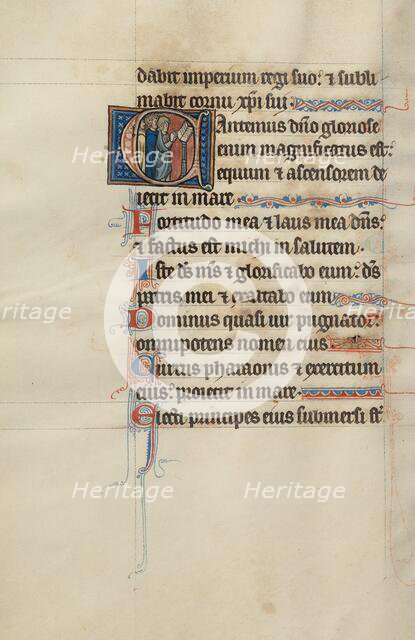 dabit imperium regi suo: & subli
mabit cornu xpi sui.
Cantemus dn̄o gloriose
enim magnificatus est:
equum & ascensorem de
iecit in mare.
Fortitudo mea & laus mea dn̄s:
& factus est michi in salutem.
Iste ds̄ ms̄ & glorificabo eum: ds̄
patris mei & exaltabo eum.
Dominus quasi uir pugnator:
omnipotens nomen eius
Currus pharaonis & exercitum
eius: proiecit in mare.
Electi principes eius submersi st̄
Heritage
Heritage
Heritage
Heritage
Heritage
Heritage
Heritage
Heritage